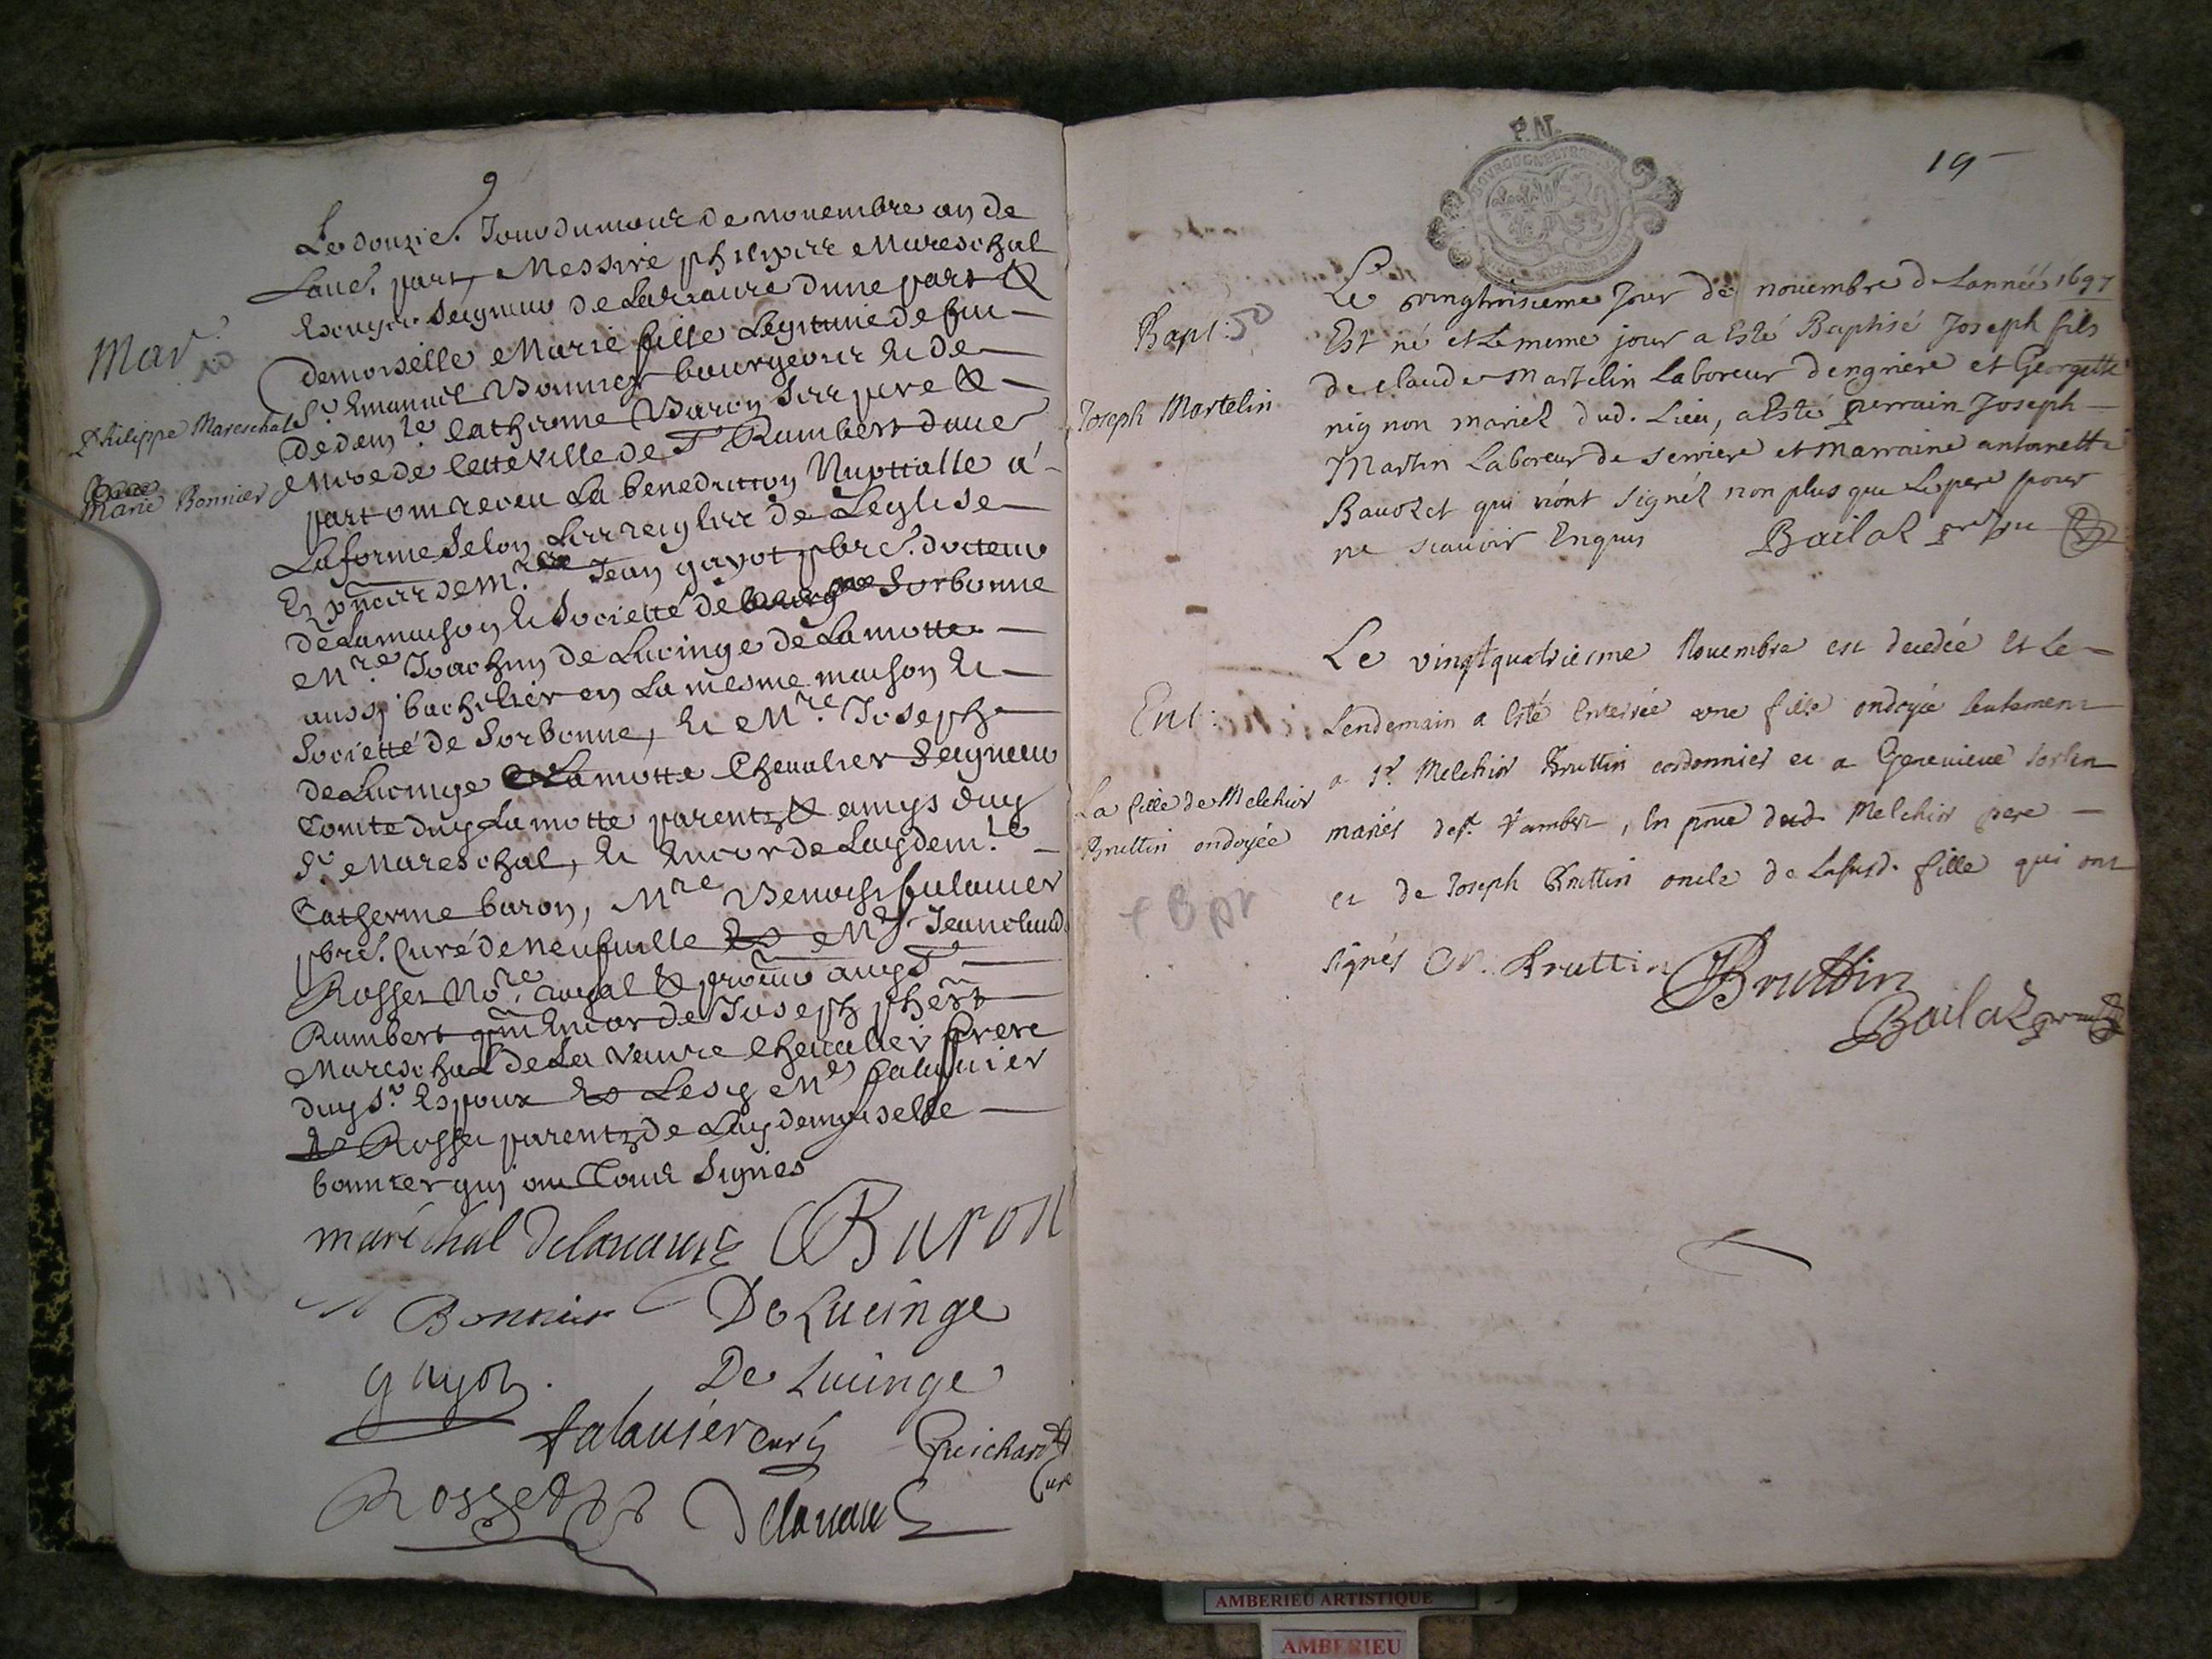 Le douzie. Jour du mois de novembre an de
Lauc. part, Messire philippe Mareschal
Escuyer seigneur de Lavaure dune part &
demoiselle Marie fille Legitime de feu
Mar
Sr. Emanuel Bonnier bourgeois et de
Philippe Mareschal
dedem.le Catherine Baron ses pere &
mere de cette ville de St Rambert dautre
Marie Bonnier
part ont receu La benediction Nuptialle a
La forme selon Les reigles de Leglise
En pñce de Mre. Jean gayot pbre. docteur
de La maison et Societté de Sorbonne
Mre. Joachim de Lucinge de Lamotte
aussy bachelier en La mesme maison et
Societté de Sorbonne, et Mre. Joseph
de Lucinge Lamotte Chevalier Seigneur
Comte duy Lamotte parents & amys duy
Sr. Mareschal, et encor de Laydem.le
Catherine baron, Mre Benoist falavier
pbre. Curé de Neufville et Me Jeanclaude
Rosset No.re royal & procur audy St
Rambert encor de Joseph
Mareschal de La Vaure Chevalier frere
duy Sr. Espoux et Lesy Mes falavier
et Rosset parents de Lay demoiselle
bonnier quj ont tous Signés
maréchal delavaure Baron
Bonnier De Lucinge
gayot. De Lucinge
falavier curé Guichard
Curé
Rosset Delavaure
P.N.
19
Le vingtroisieme Jour de novembre de Lannéé 1697
Bapt: 50
Est né et le meme jour a Esté Baptisé Joseph fils
de claude Martelin Laboreur dengriere et Georgette
Joseph Martelin
nignon mariés dud. Lieu, a Esté perrain Joseph
Martin Laboreur de serriere et marraine antoinette
Bauozet qui nont signés non plus que Le pere pour
ne scauoir Enquis Bailat
Le vingtquatriesme Nouembre est decedée et Le
Ent:
Lendemain a Esté Enterrée une fille ondoyée seulement
a Sr Melchior Bruttin cordonnier et a Genevieve
La fille de Melchior
Bruttin ondoyée
mariés de St. Rambert, En pñce dud Melchior pere
et de Joseph Bruttin oncle de Lasusd. fille qui ont
signés M. Bruttin Bruttin
Bailat
AMBERIEU ARTISTIQUE
AMBERIEU